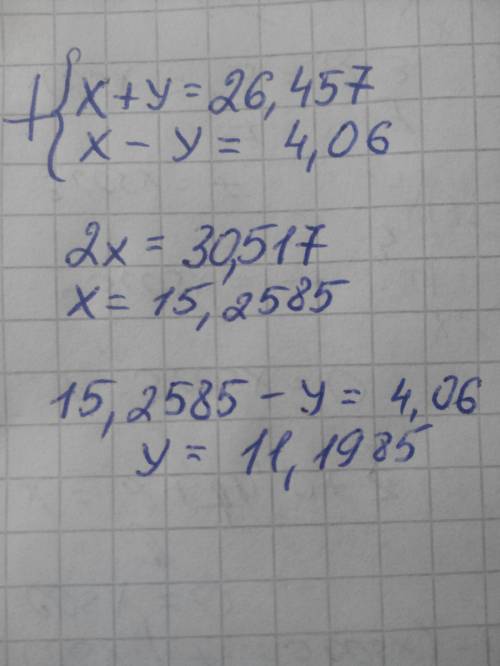 +{x+y=26,457
x-y= 4,06
2x=30,517
x=15,2585
15,2585-y=4,06
y=11,1985